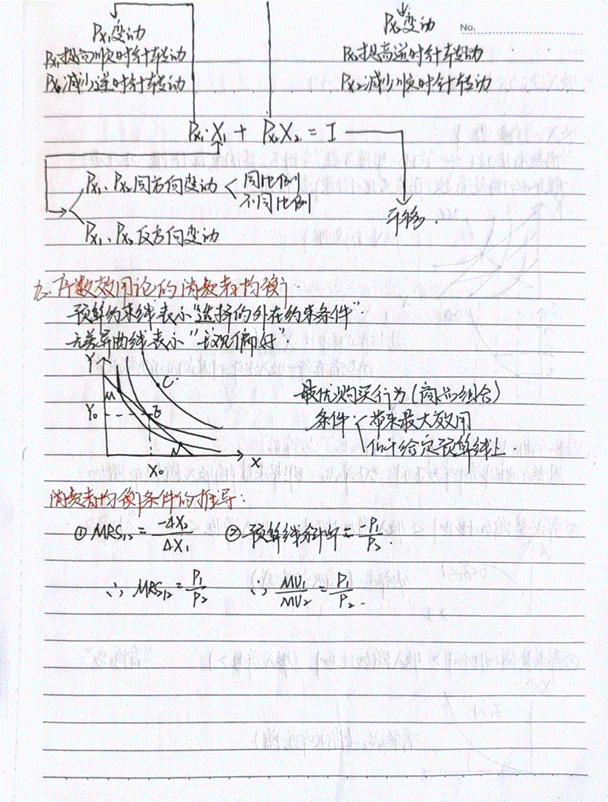 Px₁变动
Px₁提高顺时针转动
Px₁减少逆时针转动
Px₂变动
Px₂提高逆时针转动
Px₂减少顺时针转动
No.
Px₁·X₁ + Px₂X₂ = I
Px₁、Px₂同方向变动 < 同比例
不同比例
Px₁、Px₂反方向变动
平移.
序数效用论的消费者均衡
预算约束线表示"选择的外在约束条件"
无差异曲线表示"主观偏好".
Y
Y₀
C
B
X₀
X
最优购买行为(商品组合)
条件 < 带来最大效用
位于给定预算线上.
消费者均衡条件的推导:
① MRS₁₂ = -ΔX₂/ΔX₁ ② 预算线斜率 = -P₁/P₂
∴ MRS₁₂ = P₁/P₂ ∴ MU₁/MU₂ = P₁/P₂.